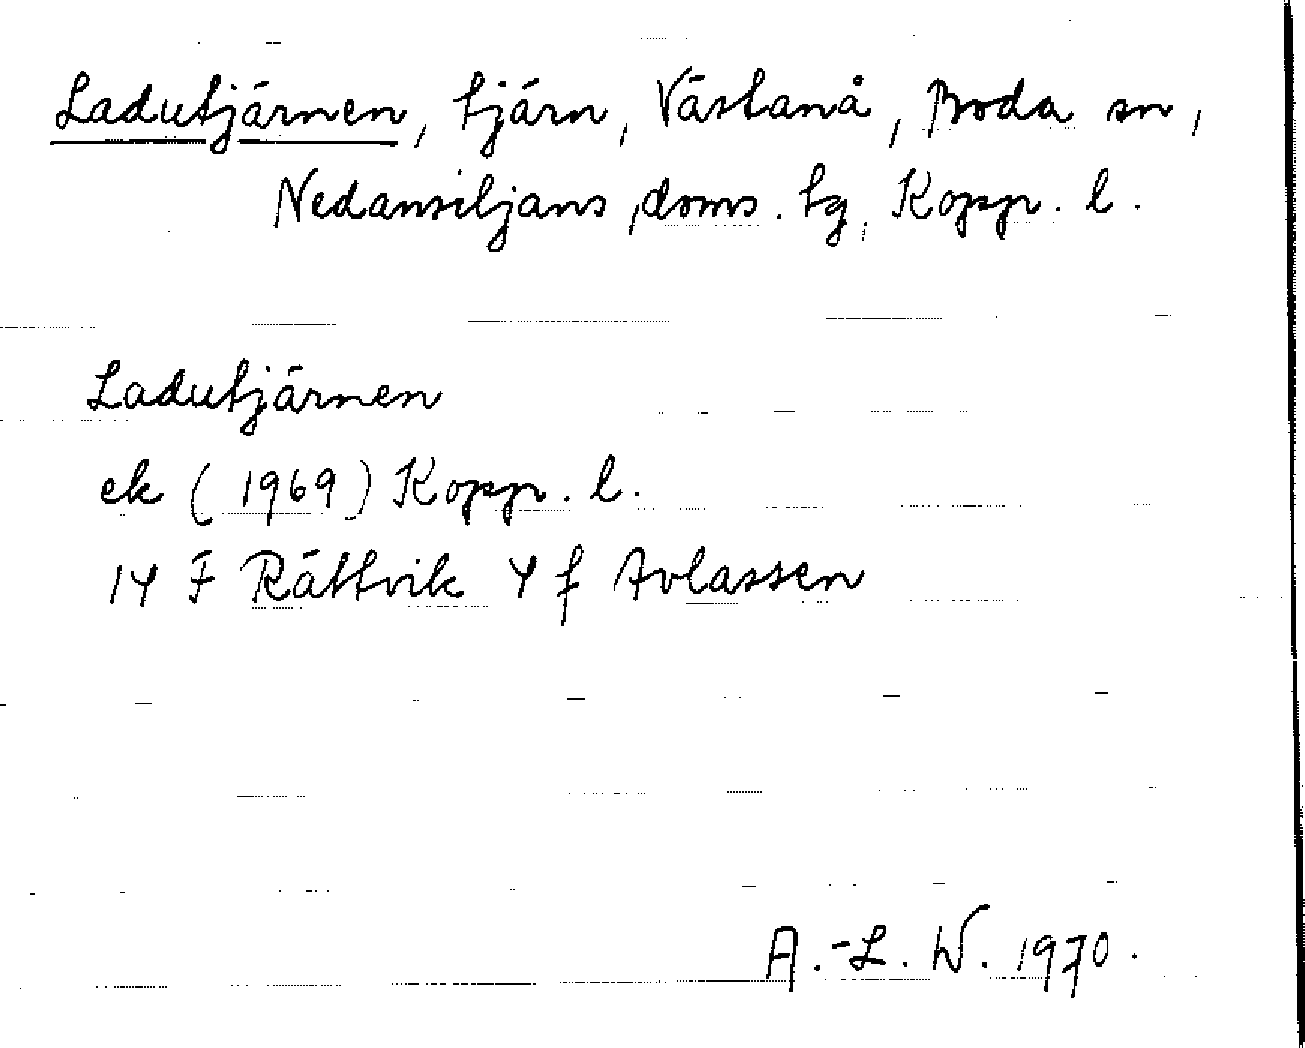 Ladutjärnen, tjärn, Västanå, Boda sn,
Nedansiljans, doms. tg, Kopp. l.
Ladutjärnen
ek (1969) Kopp. l.
14 F Rättvik 4 f Avlassen
A.-L. W. 1970.